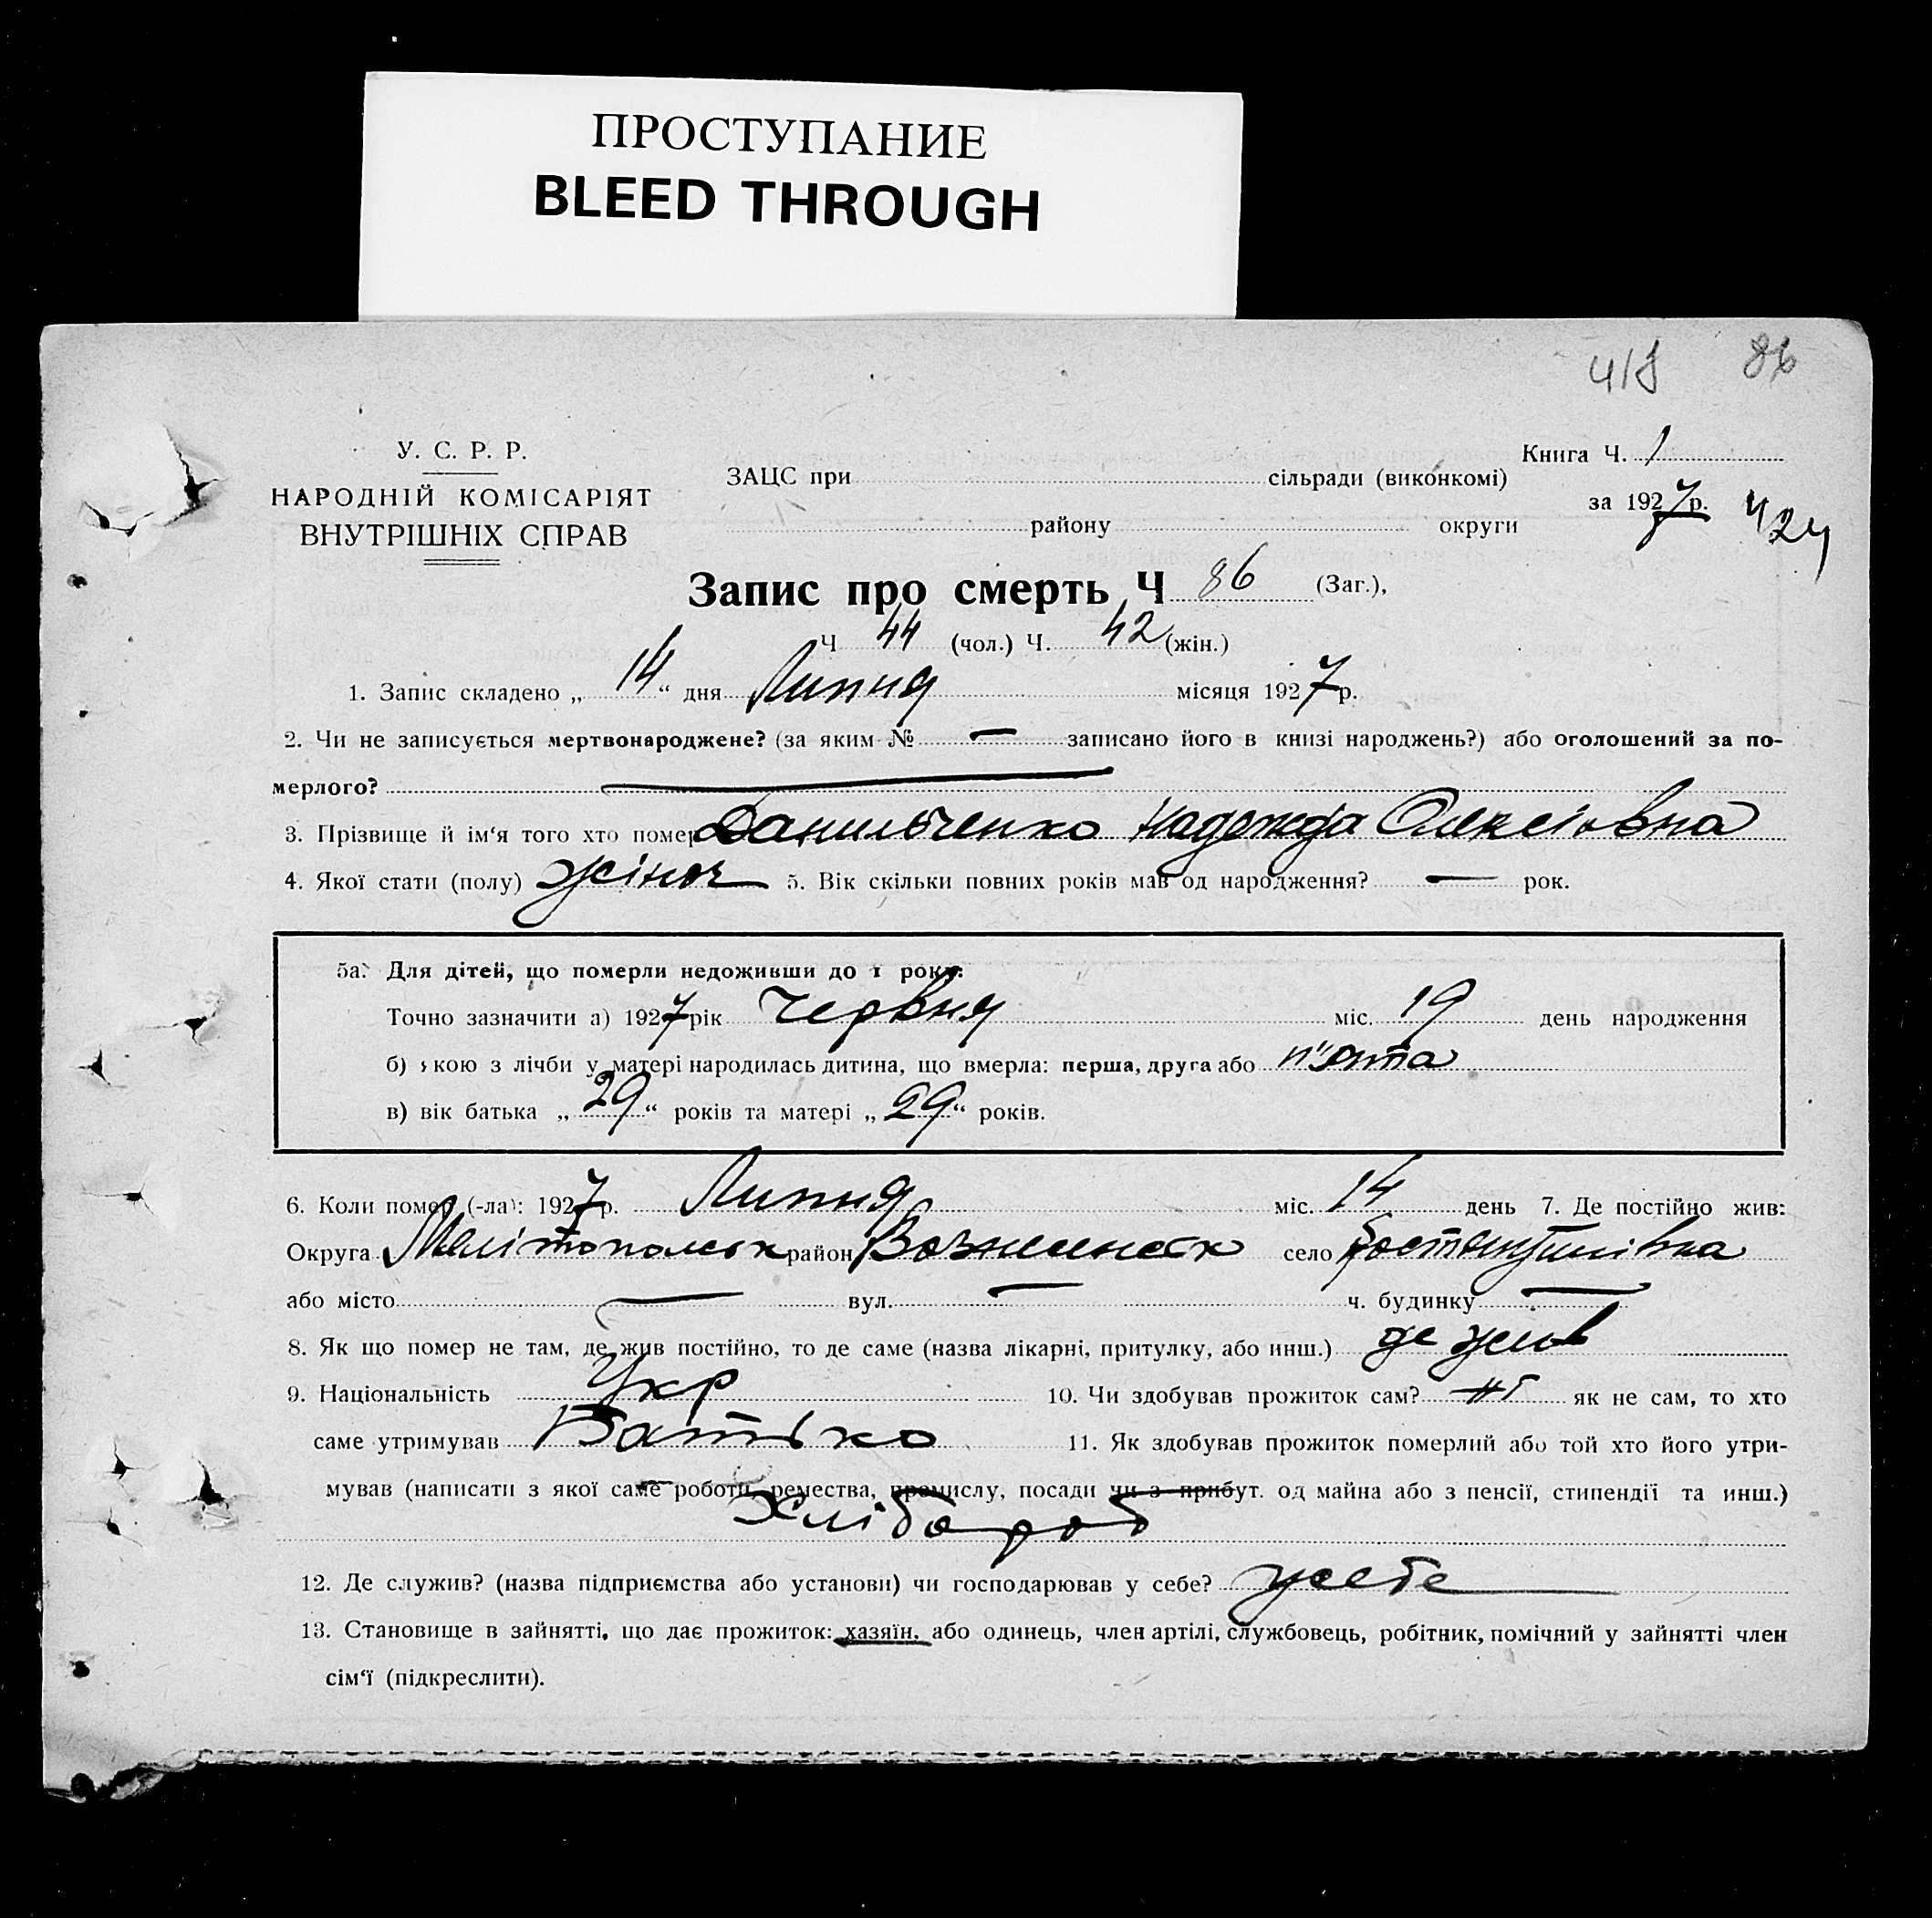 ПРОСТУПАНИЕ
BLEED THROUGH
418 86
У. С. Р. Р.
НАРОДНІЙ КОМІСАРІЯТ
ВНУТРІШНІХ СПРАВ
ЗАЦС при сільради (виконкомі)
району округи
Книга Ч. 1
за 1927р. 424
Запис про смерть Ч 86 (Заг.),
Ч 44 (чол.) Ч. 42 (жін.)
1. Запис складено „ 14 “ дня Липня місяця 1927р.
2. Чи не записується мертвонароджене? (за яким № — записано його в книзі народжень?) або оголошений за по-
мерлого? —
3. Прізвище й ім‘я того хто помер Данильченко Надежда Олексіовна
4. Якої стати (полу) жіноч 5. Вік скільки повних років мав од народження? — рок.
5а. Для дітей, що померли недоживши до 1 року:
Точно зазначити а) 1927 рік Червня міс. 19 день народження
б) якою з лічби у матері народилась дитина, що вмерла: перша, друга або п"ята
в) вік батька „ 29 “ років та матері „ 29 “ років.
6. Коли помер (-ла): 1927р. Липня міс. 14 день 7. Де постійно жив:
Округа Мелітопольск район Вознесенск село
або місто — вул. — ч. будинку —
8. Як що помер не там, де жив постійно, то де саме (назва лікарні, притулку, або инш.) де жив
9. Національність Укр 10. Чи здобував прожиток сам? ні як не сам, то хто
саме утримував Батько 11. Як здобував прожиток померлий або той хто його утри-
мував (написати з якої саме роботи, ремества, промислу, посади чи з прибут. од майна або з пенсії, стипендії та инш.)
Хлібороб
12. Де служив? (назва підприємства або установи) чи господарював у себе? у себе
13. Становище в зайнятті, що дає прожиток: хазяїн, або одинець, член артілі, службовець, робітник, помічний у зайнятті член
сім‘ї (підкреслити).